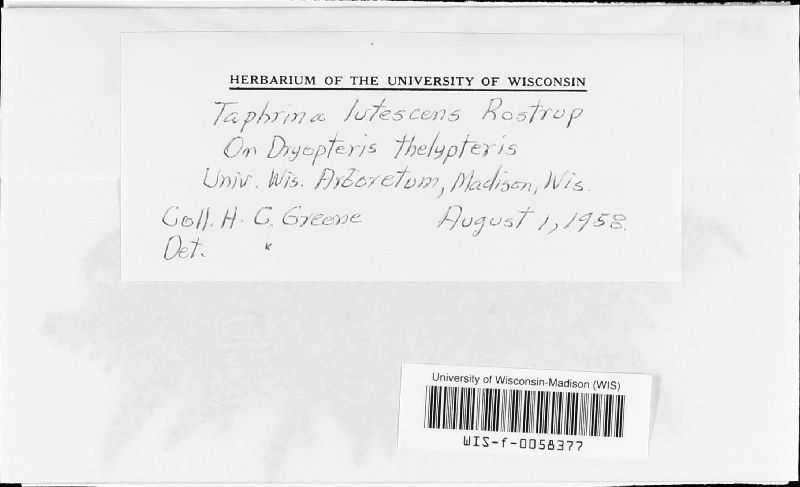 HERBARIUM OF THE UNIVERSITY OF WISCONSIN
Taphrina lutescens Rostrup
On Dryopteris thelypteris
Univ. Wis. Arboretum, Madison, Wis.
Coll. H. C. Greene August 1, 1958.
Det. "
University of Wisconsin-Madison (WIS)
WIS-f-0058377